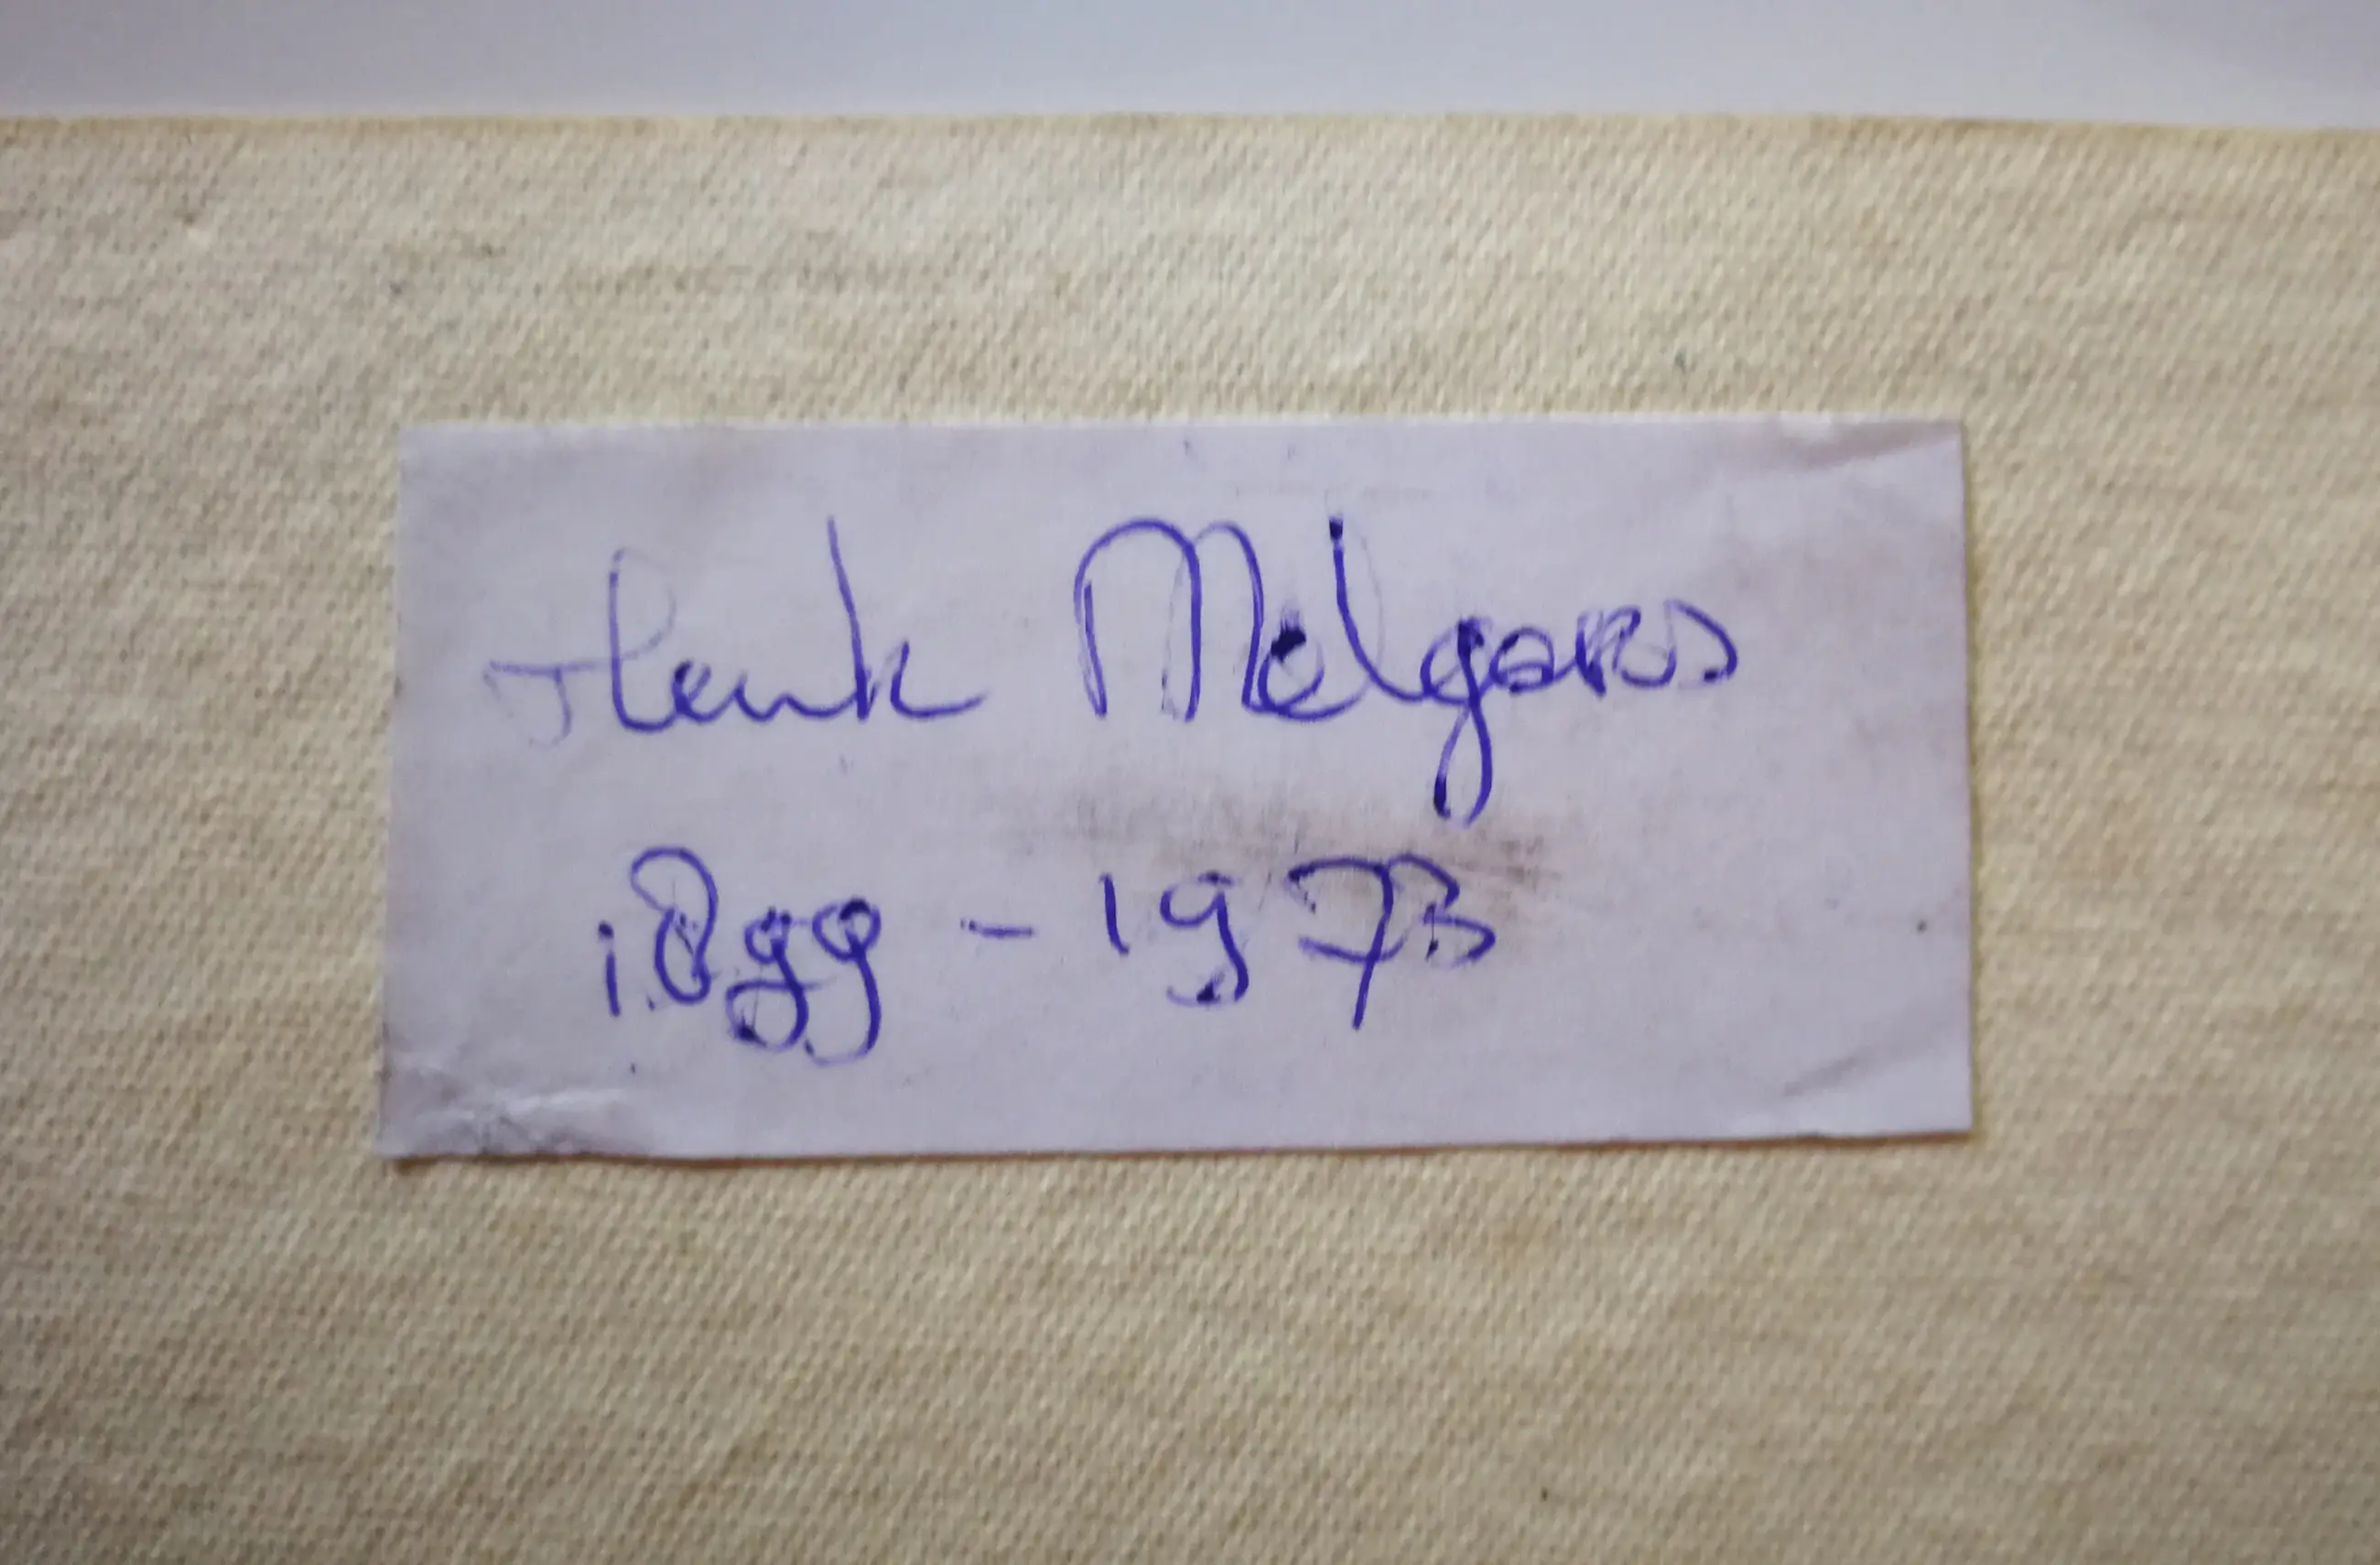 Henk Melgers
1899 - 1973